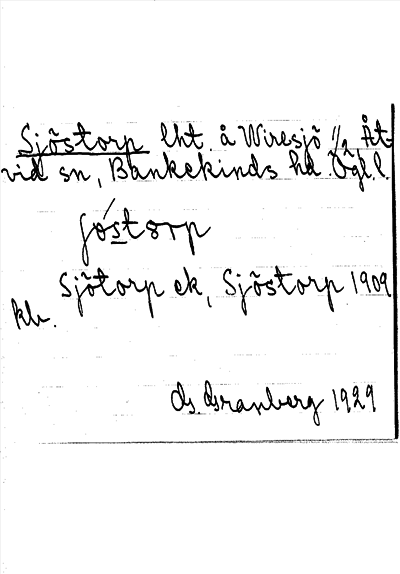 Sjöstorp lht. å Wiresjö 1/2 Åt-
vid sn, Bankekinds hd. Ögl. l.
jǿstorp
Sjötorp ek, Sjöstorp 1909
kb.
G. Granberg 1929